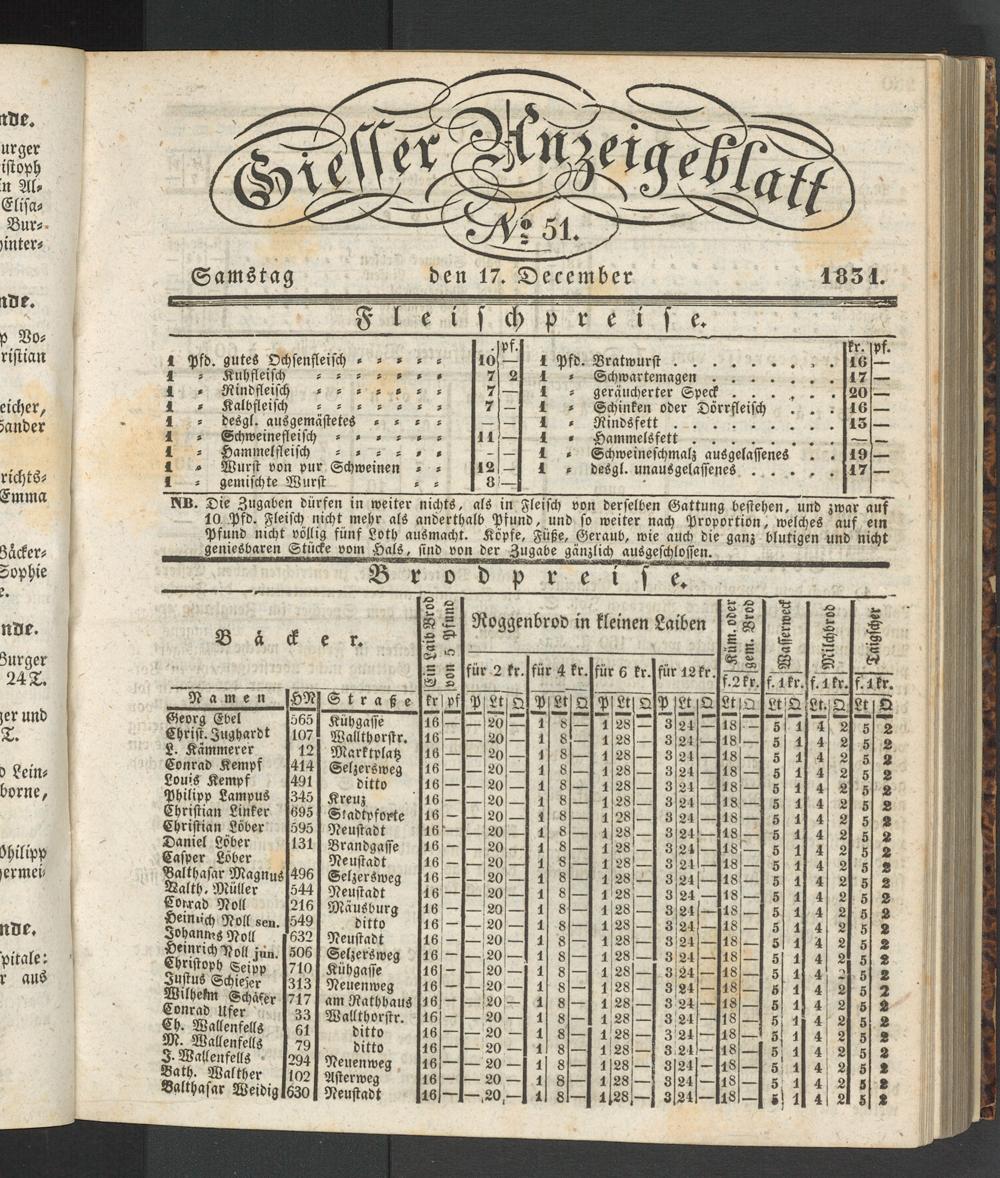 nde.
urger
istoph
in Al⸗
Elisa⸗
Bur⸗
hinter⸗
nde.
p Vo⸗
ristian
eicher,
Sander
richts⸗
Emma
Bäcker⸗
Sophie
e.
nde.
Burger
24T.
ger und
T.
d Lein⸗
borne,
Philipp
hermei⸗
nde.
spitale:
r aus
Giesser Anzeigeblatt
No 51.
Samstag den 17. December 1831.
Fleischpreise.
. pf.
1 Pfd. gutes Ochsenfleisch 10 —
1 " Kuhfleisch 7 2
1 " Rindfleisch 7 —
1 " Kalbfleisch 7 —
1 " desgl. ausgemästetes — —
1 " Schweinefleisch 11 —
1 " Hammelfleisch — —
1 " Wurst von pur Schweinen 12 —
1 " gemischte Wurst 8 —
kr. pf.
1 Pfd. Bratwurst 16 —
1 " Schwartemagen 17 —
1 " geräucherter Speck 20 —
1 " Schinken oder Dörrfleisch 16 —
1 " Rindsfett 13 —
1 " Hammelsfett — —
1 " Schweineschmalz ausgelassenes 19 —
1 " desgl. unausgelassenes 17 —
NB. Die Zugaben dürfen in weiter nichts, als in Fleisch von derselben Gattung bestehen, und zwar auf
10 Pfd. Fleisch nicht mehr als anderthalb Pfund, und so weiter nach Proportion, welches auf ein
Pfund nicht völlig fünf Loth ausmacht. Köpfe, Füße, Geraub, wie auch die ganz blutigen und nicht
geniesbaren Stücke vom Hals, sind von der Zugabe gänzlich ausgeschlossen.
Brodpreise.
Bäcker. Ein Laib Brod von 5 Pfund Roggenbrod in kleinen Laiben Küm. oder gem. Brod Wasserweck Milchbrod Taigscher
für 2 kr. für 4 kr. für 6 kr. für 12 kr. f. 2 kr. f. 1 kr. f. 1 kr. f. 1 kr.
Namen HN Straße kr pf P Lt Q P Lt Q P Lt Q P Lt Q Lt Q Lt Q Lt. Q Lt Q
Georg Ebel 565 Kühgasse 16 — — 20 — 1 8 — 1 28 — 3 24 — 18 — 5 1 4 2 5 2
Christ. Jughardt 107 Wallthorstr. 16 — — 20 — 1 8 — 1 28 — 3 24 — 18 — 5 1 4 2 5 2
L. Kämmerer 12 Marktplatz 16 — — 20 — 1 8 — 1 28 — 3 24 — 18 — 5 1 4 2 5 2
Conrad Kempf 414 Selzersweg 16 — — 20 — 1 8 — 1 28 — 3 24 — 18 — 5 1 4 2 5 2
Louis Kempf 491 ditto 16 — — 20 — 1 8 — 1 28 — 3 24 — 18 — 5 1 4 2 5 2
Philipp Lampus 345 Kreuz 16 — — 20 — 1 8 — 1 28 — 3 24 — 18 — 5 1 4 2 5 2
Christian Linker 695 Stadtpforte 16 — — 20 — 1 8 — 1 28 — 3 24 — 18 — 5 1 4 2 5 2
Christian Löber 595 Neustadt 16 — — 20 — 1 8 — 1 28 — 3 24 — 18 — 5 1 4 2 5 2
Daniel Löber 131 Brandgasse 16 — — 20 — 1 8 — 1 28 — 3 24 — 18 — 5 1 4 2 5 2
Casper Löber Neustadt 16 — — 20 — 1 8 — 1 28 — 3 24 — 18 — 5 1 4 2 5 2
Balthasar Magnus 496 Selzersweg 16 — — 20 — 1 8 — 1 28 — 3 24 — 18 — 5 1 4 2 5 2
Balth. Müller 544 Neustadt 16 — — 20 — 1 8 — 1 28 — 3 24 — 18 — 5 1 4 2 5 2
Conrad Noll 216 Mäusburg 16 — — 20 — 1 8 — 1 28 — 3 24 — 18 — 5 1 4 2 5 2
Heinrich Noll sen. 549 ditto 16 — — 20 — 1 8 — 1 28 — 3 24 — 18 — 5 1 4 2 5 2
Johannes Noll 632 Neustadt 16 — — 20 — 1 8 — 1 28 — 3 24 — 18 — 5 1 4 2 5 2
Heinrich Noll jun. 506 Selzersweg 16 — — 20 — 1 8 — 1 28 — 3 24 — 18 — 5 1 4 2 5 2
Christoph Seipp 710 Kühgasse 16 — — 20 — 1 8 — 1 28 — 3 24 — 18 — 5 1 4 2 5 2
Justus Schiefer 313 Neuenweg 16 — — 20 — 1 8 — 1 28 — 3 24 — 18 — 5 1 4 2 5 2
Wilhelm Schäfer 717 am Rathhaus 16 — — 20 — 1 8 — 1 28 — 3 24 — 18 — 5 1 4 2 5 2
Conrad Ufer 33 Wallthorstr. 16 — — 20 — 1 8 — 1 28 — 3 24 — 18 — 5 1 4 2 5 2
Ch. Wallenfells 61 ditto 16 — — 20 — 1 8 — 1 28 — 3 24 — 18 — 5 1 4 2 5 2
M. Wallenfells 79 ditto 16 — — 20 — 1 8 — 1 28 — 3 24 — 18 — 5 1 4 2 5 2
J. Wallenfells 294 Neuenweg 16 — — 20 — 1 8 — 1 28 — 3 24 — 18 — 5 1 4 2 5 2
Bath. Walther 102 Asterweg 16 — — 20 — 1 8 — 1 28 — 3 24 — 18 — 5 1 4 2 5 2
Balthasar Weidig 630 Neustadt 16 — — 20 — 1 8 — 1 28 — 3 24 — 18 — 5 1 4 2 5 2